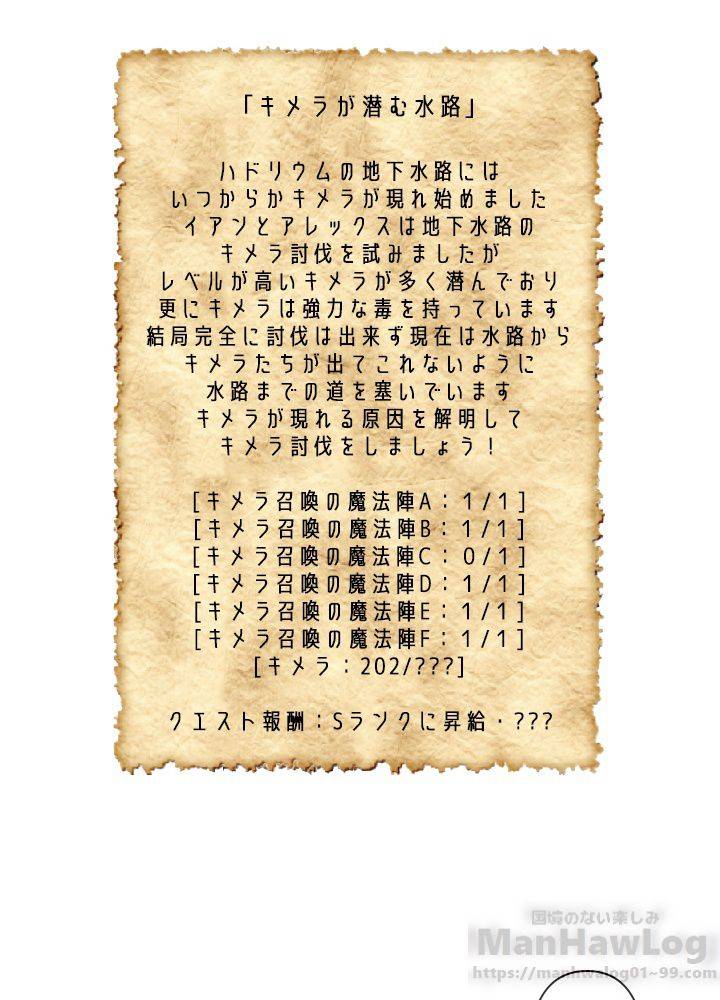 「キメラが潜む水路」
ハドリウムの地下水路には
いつからかキメラが現れ始めました
イアンとアレックスは地下水路の
キメラ討伐を試みましたが
レベルが高いキメラが多く潜んでおり
更にキメラは強力な毒を持っています
結局完全に討伐は出来ず現在は水路から
キメラたちが出てこれないように
水路までの道を塞いでいます
キメラが現れる原因を解明して
キメラ討伐をしましょう！
[キメラ召喚の魔法陣A：1/1]
[キメラ召喚の魔法陣B：1/1]
[キメラ召喚の魔法陣C：0/1]
[キメラ召喚の魔法陣D：1/1]
[キメラ召喚の魔法陣E：1/1]
[キメラ召喚の魔法陣F：1/1]
[キメラ：202/???]
クエスト報酬：Sランクに昇給・???
国境のない楽しみ
ManHawLog
https://manhwalog01~99.com